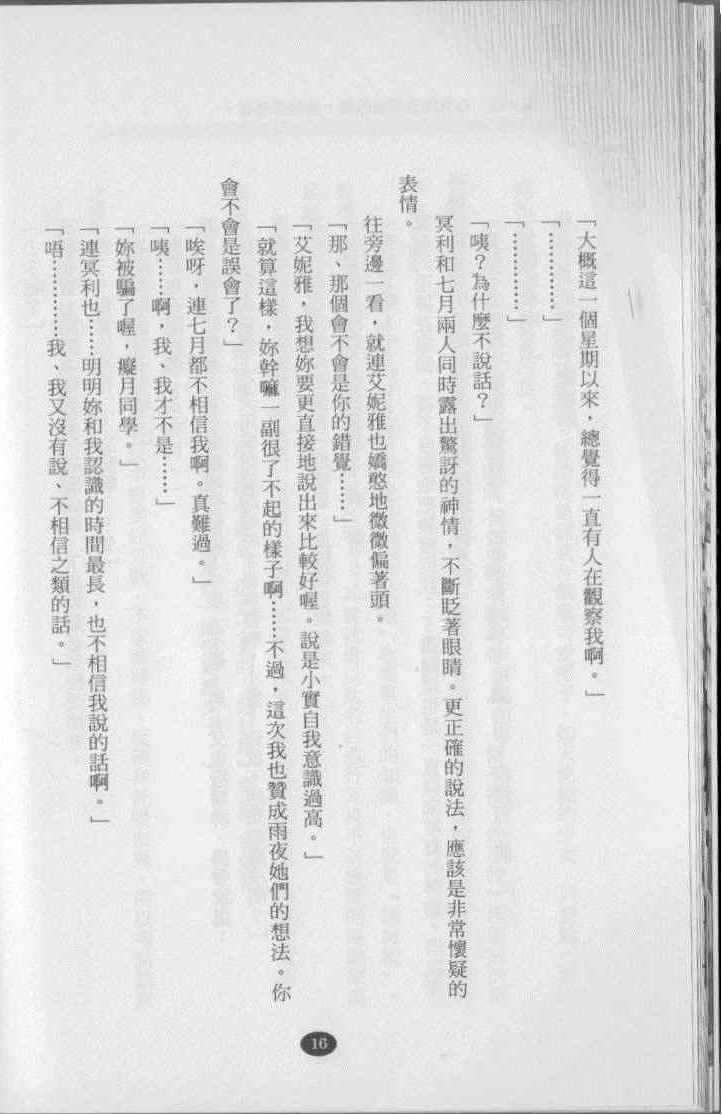 「大概這一個星期以來，總覺得一直有人在觀察我啊。」
「…………」
「…………」
「咦？為什麼不說話？」
冥利和七月兩人同時露出驚訝的神情，不斷眨著眼睛。更正確的說法，應該是非常懷疑的
表情。
往旁邊一看，就連艾妮雅也嬌憨地微微偏著頭。
「那、那個會不會是你的錯覺……」
「艾妮雅，我想妳要更直接地說出來比較好喔。說是小實自我意識過高。」
「就算這樣，妳幹嘛一副很了不起的樣子啊……不過，這次我也贊成雨夜她們的想法。你
會不會是誤會了？」
「唉呀，連七月都不相信我啊。真難過。」
「咦……啊，我、我才不是……」
「妳被騙了喔，癡月同學。」
「連冥利也……明明妳和我認識的時間最長，也不相信我說的話啊。」
「唔…………我、我又沒有說、不相信之類的話。」
16